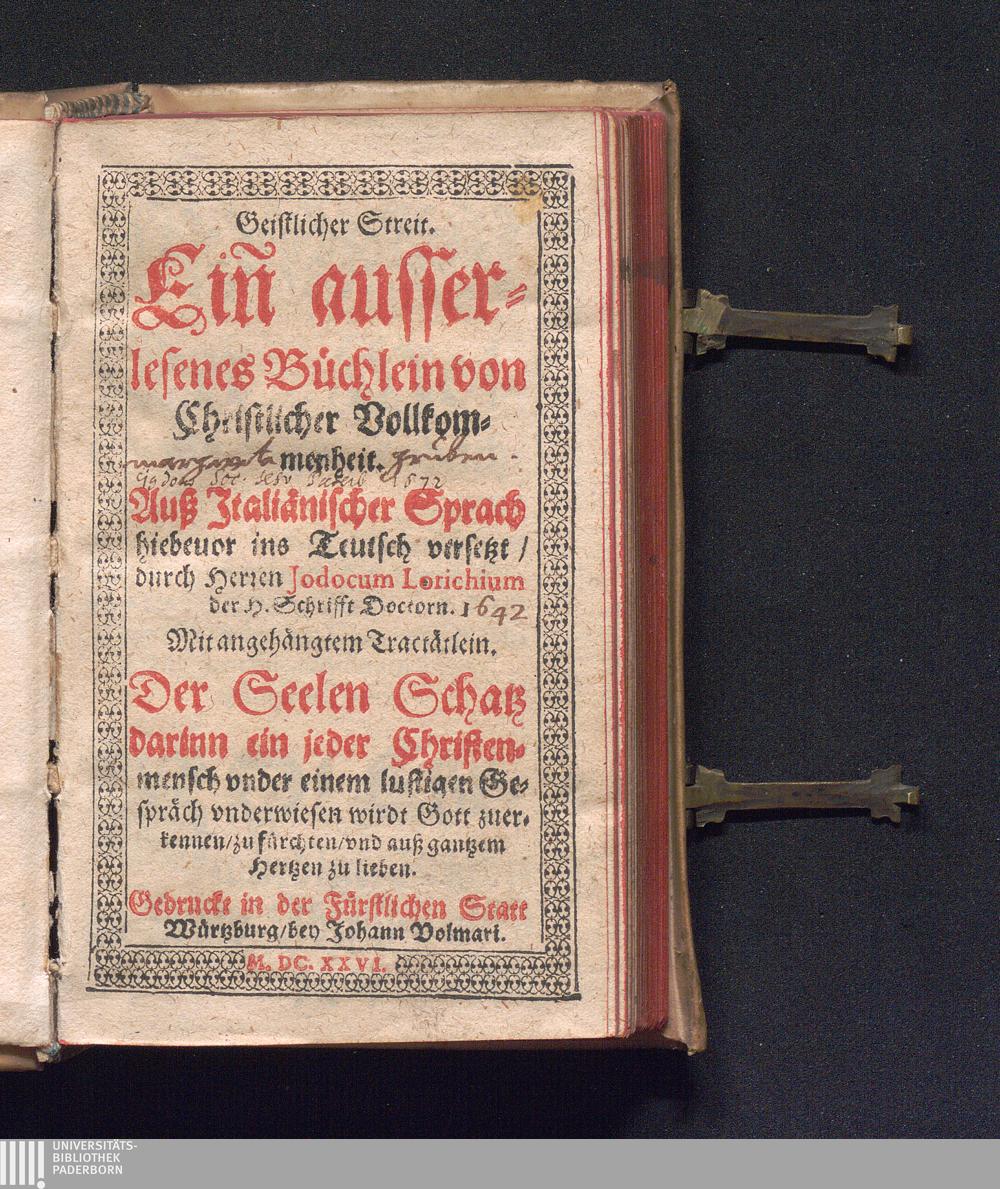 Geistlicher Streit.
Eiñ ausser-
lesenes Büchlein von
Christlicher Vollkom-
menheit.
1672
Auß Italiänischer Sprach
hiebeuor ins Teutsch versetzt /
durch Herren Jodocum Lorichium
der H. Schrifft Doctorn. 1642
Mit angehängtem Tractätlein.
Der Seelen Schatz
darinn ein jeder Christen-
mensch vnder einem lustigen Ge-
spräch vnderwiesen wirdt Gott zuer-
kennen/zu fürchten/vnd auß gantzem
Hertzen zu lieben.
Gedruckt in der Fürstlichen Statt
Würtzburg/bey Johann Volmari.
M. DC. XXVI.
UNIVERSITÄTS-
BIBLIOTHEK
PADERBORN